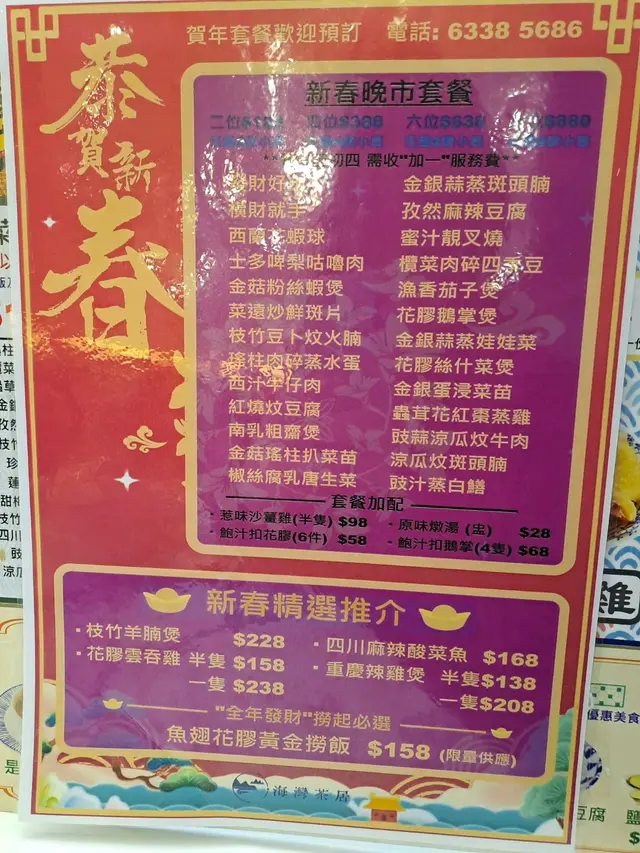 賀年套餐歡迎預訂 電話: 6338 5686
恭賀新春
新春晚市套餐
二位 四位$388 六位$638 $880
初四 需收"加一"服務費**
發財好
橫財就手
西蘭花蝦球
士多啤梨咕嚕肉
金菇粉絲蝦煲
菜遠炒鮮斑片
枝竹豆卜炆火腩
瑤柱肉碎蒸水蛋
西汁牛仔肉
紅燒炆豆腐
南乳粗齋煲
金菇瑤柱扒菜苗
椒絲腐乳唐生菜
金銀蒜蒸斑頭腩
孜然麻辣豆腐
蜜汁靚叉燒
欖菜肉碎四季豆
漁香茄子煲
花膠鵝掌煲
金銀蒜蒸娃娃菜
花膠絲什菜煲
金銀蛋浸菜苗
蟲茸花紅棗蒸雞
豉蒜涼瓜炆牛肉
涼瓜炆斑頭腩
豉汁蒸白鱔
套餐加配
· 惹味沙薑雞(半隻) $98
· 鮑汁扣花膠(6件) $58
· 原味燉湯 (盅) $28
· 鮑汁扣鵝掌(4隻) $68
新春精選推介
· 枝竹羊腩煲 $228
· 花膠雲吞雞 半隻 $158
一隻 $238
· 四川麻辣酸菜魚 $168
· 重慶辣雞煲 半隻$138
一隻$208
"全年發財"撈起必選
魚翅花膠黃金撈飯 $158 (限量供應)
海灣茶居
雞
優惠美食
豆腐
鹽